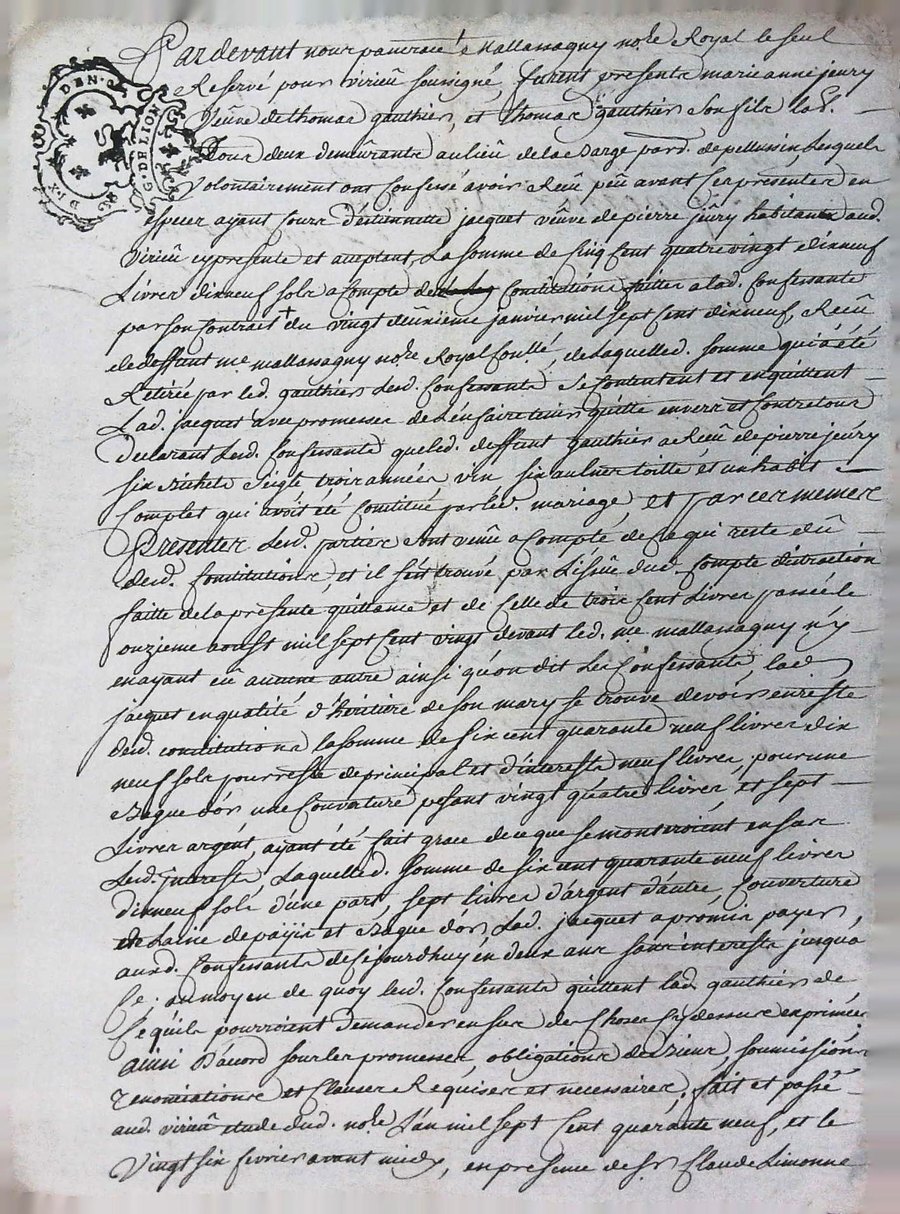 Pardevant nous pancrace Mallassagny no.re Royal le seul
Reservé pour virieu soussigné, furent presents marie anne jeury
Veuve de thomas gauthier, et thomas gauthier son fils
Tous deux demeurants au lieu de la Barge par.d. de pellussin, Lesquels
Volontairement ont Confessé avoir Reçû peu avant Ces presentes en
especes ayant Cours d'estiennette jacquet veuve de pierre jeury habitante aud.
virieu cy presente et acceptant La somme de Cinq Cent quatre vingt dixneuf
Livres dixneuf sols a compte des Constitutions faittes a lad. Confessante
par son Contract du vingt deuxieme janvier mil sept Cent dixneuf, Reçû
de deffunt me mallassagny no.re Royal de Laquelled. somme qui a été
Retirée par led. gauthier Lesd. Confessants se Contentent et en quittent
Lad. jacquet avec promesse de L'en faire tenir quitte envers et Contre tous
Declarant Lesd. Confessants que led. deffunt gauthier a Reçû de pierre jeury
six Bichets seigle trois années vin six aulnes toille et un habit
Complet qui avoit été Constitué par led. mariage, et par ces mesmes
Presentes Lesd. parties sont venû a Compte de Ce qui reste dû
desd. Constitutions, et il s'est trouvé par L'issûe dud. Compte distraction
faitte de la presente quittance et de Celle de trois Cent Livres passée le
onzieme aoust mil sept Cent vingt devant led. me mallassagny n'y
en ayant eû aucune autre ainsi qu'on dit Les Confessants, lad
jacquet en qualité d'heritiere de son mary se trouve devoir en reste
desd. constitutions la somme de six cent quarante neuf livres dix
neuf sols pour reste de principal et d'interests neuf livres, pour une
Bague d'or une Couverture pesant vingt quatre livres, et sept
Livres argent, ayant été fait grace de ce que se montroient en sus
Lesd. interests Laquelled. somme de six cent quarante neuf livres
dixneuf sols d'une part, sept livres d'argent d'autre, Couverture
de Laine de païs et Bague d'or Lad. jacquet a promis payer
auxd. Confessants de Cejourdhuy en deux ans sans interests jusqu'à
Ce. au moyen de quoy lesd. Confessants quittent lad. gauthier de
Ce qu'ils pourroient demander en sus des Choses Cy dessus exprimées
ainsi D'acord sous les promesses, obligations des biens, soumissions
renonciations et Clauses Requises et necessaires, fait et passé
aud. virieu etude dud. no.re L'an mil sept Cent quarante neuf, et le
Vingt six fevrier avant midy, en presence de sr. Claude Limonne